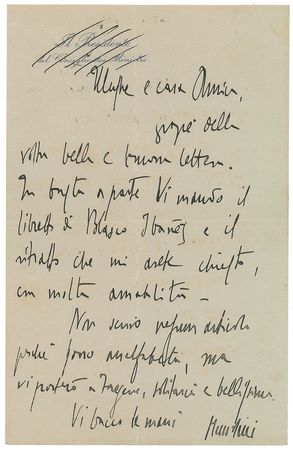 Il Presidente
del Consiglio dei Ministri
Illustre e cara Amica,
grazie della
vostra bella e buona lettera.
In busta a parte Vi mando il
libretto di Blasco Ibañez e il
ritratto che mi avete chiesto,
con molta amabilità –
Non scrivo nessun articolo
perché sono analfabeta, ma
vi porterò a Fregene, solitaria e bellissima.
Vi bacio le mani Mussolini